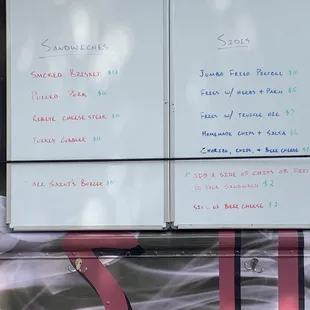 Sandwiches
Smoked Brisket
Pulled Pork
Cheese Steak
Turkey
All Saint's Burger
Sides
Jumbo Fried Pretzel
Fries w/ Herbs + Parm $6
Fries w/ Truffle Oil $7
Homemade Chips + Salsa
Chorizo, Chips, + Beer Cheese
Add a side of chips or fries
to your sandwich $2
Side of Beer Cheese $2